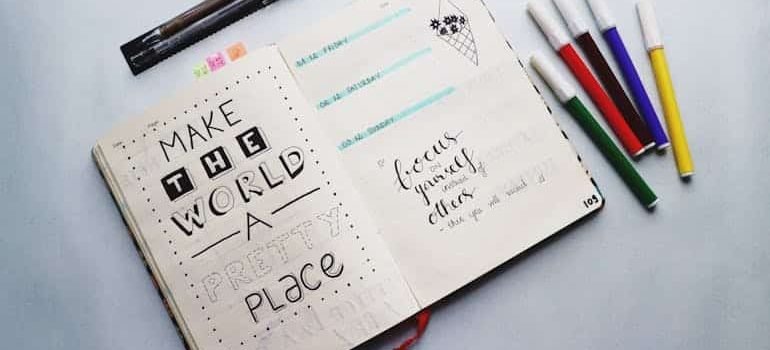 MAKE
THE
WORLD
A
PRETTY
PLACE
FRIDAY
SATURDAY
SUNDAY
focus
on
yourself
instead of
others
- then you will succeed
103